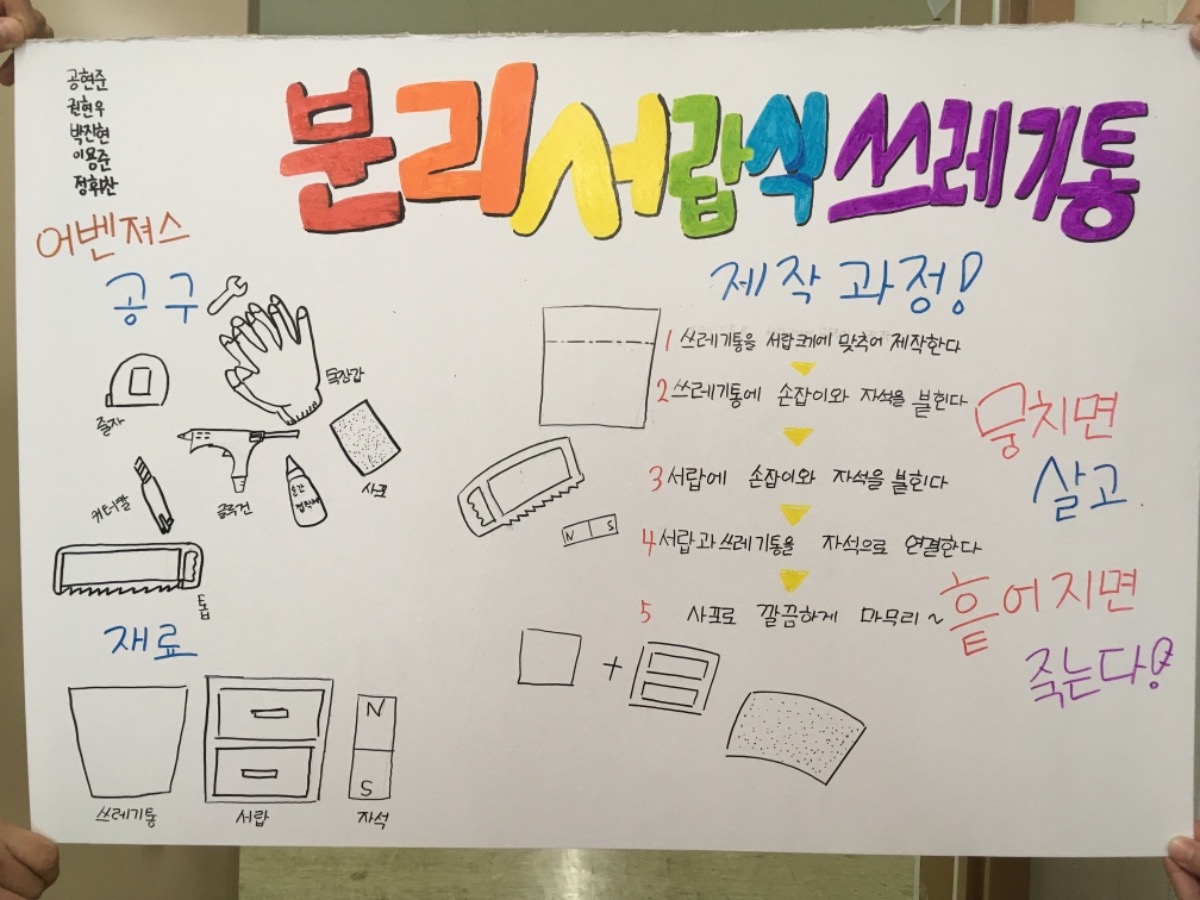 공현준
권현우
박진현
이용준
정휘찬
어벤져스
분리서랍식쓰레기통
공구
목장갑
줄자
커터칼
글루건
순간
접착제
사포
톱
재료
N
S
쓰레기통
서랍
자석
제작 과정!
1 쓰레기통을 서랍크기에 맞추어 제작한다
2 쓰레기통에 손잡이와 자석을 붙힌다
3 서랍에 손잡이와 자석을 붙힌다
4 서랍과 쓰레기통을 자석으로 연결한다
5 사포로 깔끔하게 마무리~
N S
+
뭉치면
살고
흩어지면
죽는다!